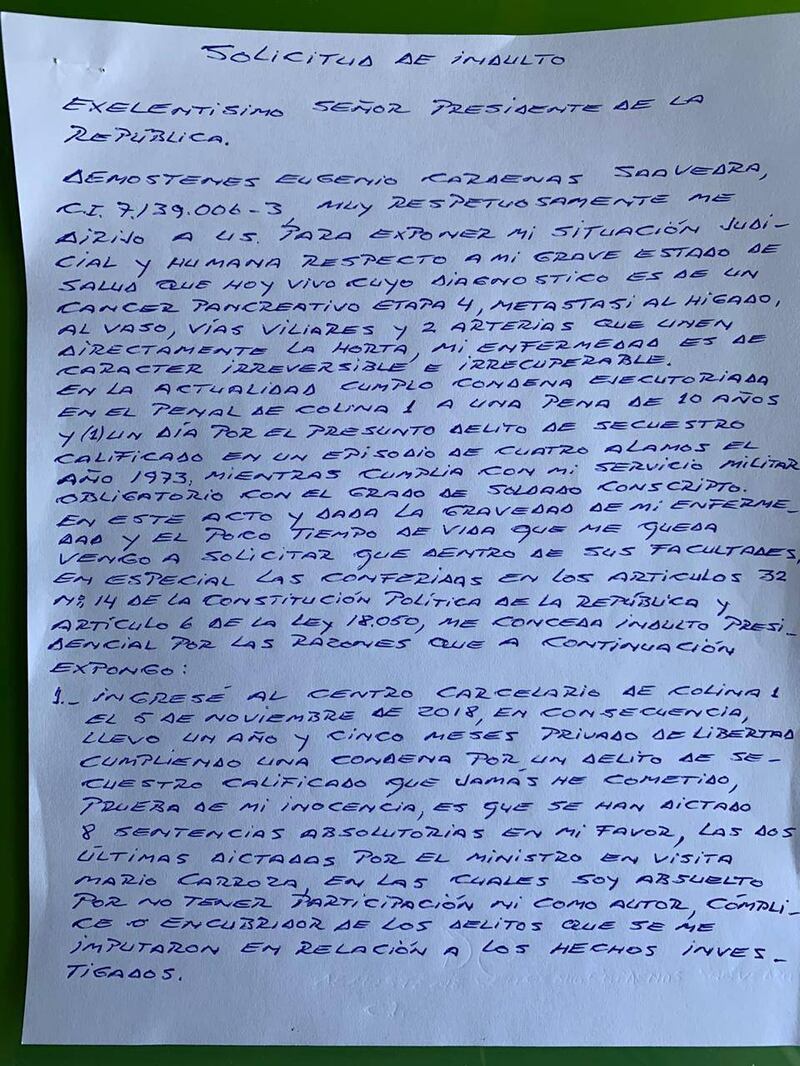 SOLICITUD DE INDULTO
EXELENTISIMO SEÑOR PRESIDENTE DE LA
REPÚBLICA.
DEMOSTENES EUGENIO CARDENAS SAAVEDRA,
C.I. 7.139.006-3, MUY RESPETUOSAMENTE ME
DIRIJO A US. PARA EXPONER MI SITUACIÓN JUDI-
CIAL Y HUMANA RESPECTO A MI GRAVE ESTADO DE
SALUD QUE HOY VIVO CUYO DIAGNOSTICO ES DE UN
CANCER PANCREATIVO ETAPA 4, METASTASI AL HIGADO,
AL VASO, VÍAS VILIARES Y 2 ARTERIAS QUE UNEN
DIRECTAMENTE LA HORTA, MI ENFERMEDAD ES DE
CARACTER IRREVERSIBLE E IRRECUPERABLE.
EN LA ACTUALIDAD CUMPLO CONDENA EJECUTORIADA
EN EL PENAL DE COLINA 1 A UNA PENA DE 10 AÑOS
Y (1) UN DÍA POR EL PRESUNTO DELITO DE SECUESTRO
CALIFICADO EN UN EPISODIO DE CUATRO ALAMOS EL
AÑO 1973, MIENTRAS CUMPLIA CON MI SERVICIO MILITAR
OBLIGATORIO CON EL GRADO DE SOLDADO CONSCRIPTO.
EN ESTE ACTO Y DADA LA GRAVEDAD DE MI ENFERME-
DAD Y EL POCO TIEMPO DE VIDA QUE ME QUEDA
VENGO A SOLICITAR QUE DENTRO DE SUS FACULTADES,
EN ESPECIAL LAS CONFERIDAS EN LOS ARTICULOS 32
Nº, 14 DE LA CONSTITUCIÓN POLÍTICA DE LA REPÚBLICA Y
ARTÍCULO 6 DE LA LEY 18.050, ME CONCEDA INDULTO PRESI-
DENCIAL POR LAS RAZONES QUE A CONTINUACIÓN
EXPONGO:
1.- INGRESÉ AL CENTRO CARCELARIO DE COLINA 1
EL 5 DE NOVIEMBRE DE 2018, EN CONSECUENCIA,
LLEVO UN AÑO Y CINCO MESES PRIVADO DE LIBERTAD
CUMPLIENDO UNA CONDENA POR UN DELITO DE SE-
CUESTRO CALIFICADO QUE JAMÁS HE COMETIDO,
PRUEBA DE MI INOCENCIA, ES QUE SE HAN DICTADO
8 SENTENCIAS ABSOLUTORIAS EN MI FAVOR, LAS DOS
ÚLTIMAS DICTADAS POR EL MINISTRO EN VISITA
MARIO CARROZA, EN LAS CUALES SOY ABSUELTO
POR NO TENER PARTICIPACIÓN NI COMO AUTOR, COMPLI-
CE O ENCUBRIDOR DE LOS DELITOS QUE SE ME
IMPUTARON EN RELACIÓN A LOS HECHOS INVES-
TIGADOS.